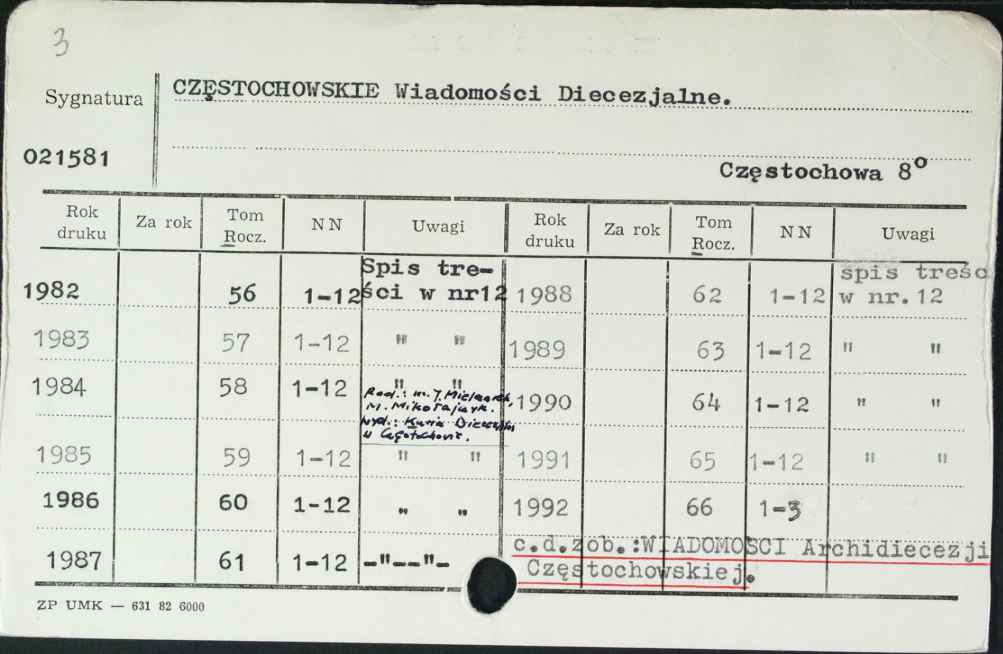 3
Sygnatura
CZĘSTOCHOWSKIE Wiadomości Diecezjalne.
021581
Częstochowa 8°
Rok druku Za rok Tom Rocz. NN Uwagi Rok druku Za rok Tom Rocz. NN Uwagi
1982 56 1-12 Spis treści w nr12 1988 62 1-12 spis treśc w nr. 12
1983 57 1-12 " " 1989 63 1-12 " "
1984 58 1-12 " " 1990 64 1-12 " "
Red.: M. J. Mielczarek,
M. Mikołajczyk.
Wyd.: Kuria Diecezjalna
w Częstochowie.
1985 59 1-12 " " 1991 65 1-12 " "
1986 60 1-12 " " 1992 66 1-3
1987 61 1-12 -"--"- c.d.zob.:WIADOMOSCI Archidiecezji
Częstochowskiej.
ZP UMK — 631 82 6000